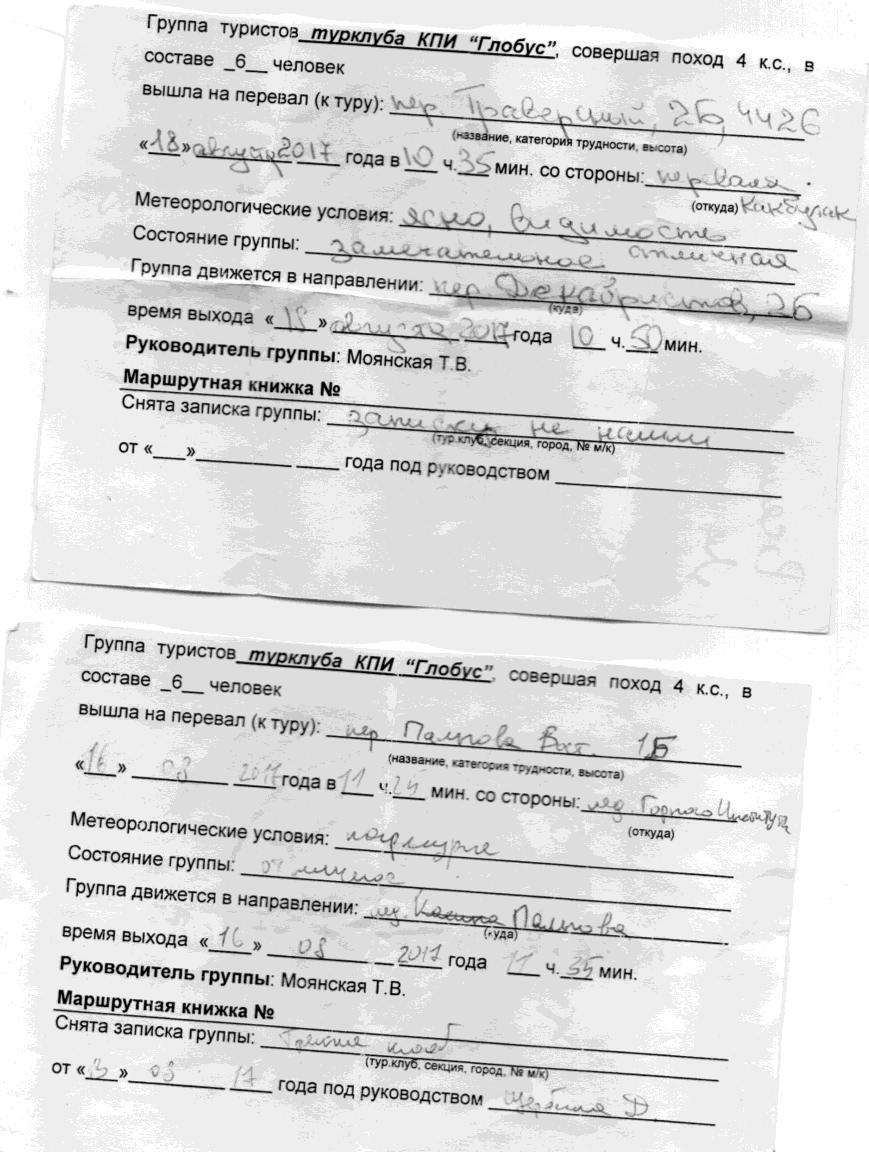 Группа туристов турклуба КПИ “Глобус”, совершая поход 4 к.с., в
составе _6__ человек
вышла на перевал (к туру): пер. Траверсный, 2Б, 4426
(название, категория трудности, высота)
«18» августа 2017 года в 10 ч. 35 мин. со стороны: перевала
(откуда) Какбулак
Метеорологические условия: ясно, видимость
отличная
Состояние группы: замечательное
Группа движется в направлении: пер. Декабристов, 2Б
(куда)
время выхода «18» августа 2017 года 10 ч. 50 мин.
Руководитель группы: Моянская Т.В.
Маршрутная книжка №
Снята записка группы: записки не нашли
(тур.клуб, секция, город, № м/к)
от «___»_________ ____ года под руководством
Группа туристов турклуба КПИ “Глобус”, совершая поход 4 к.с., в
составе _6__ человек
вышла на перевал (к туру): пер. Пальгова Вост. 1Б
(название, категория трудности, высота)
«16» 08 2017 года в 11 ч. 25 мин. со стороны: лед. Горного Института
(откуда)
Метеорологические условия: пасмурно
Состояние группы: отличное
Группа движется в направлении: Пальгова
(куда)
время выхода «16» 08 2017 года 11 ч. 35 мин.
Руководитель группы: Моянская Т.В.
Маршрутная книжка №
Снята записка группы:
(тур.клуб, секция, город, № м/к)
от «3» 08 17 года под руководством Щербина Д.